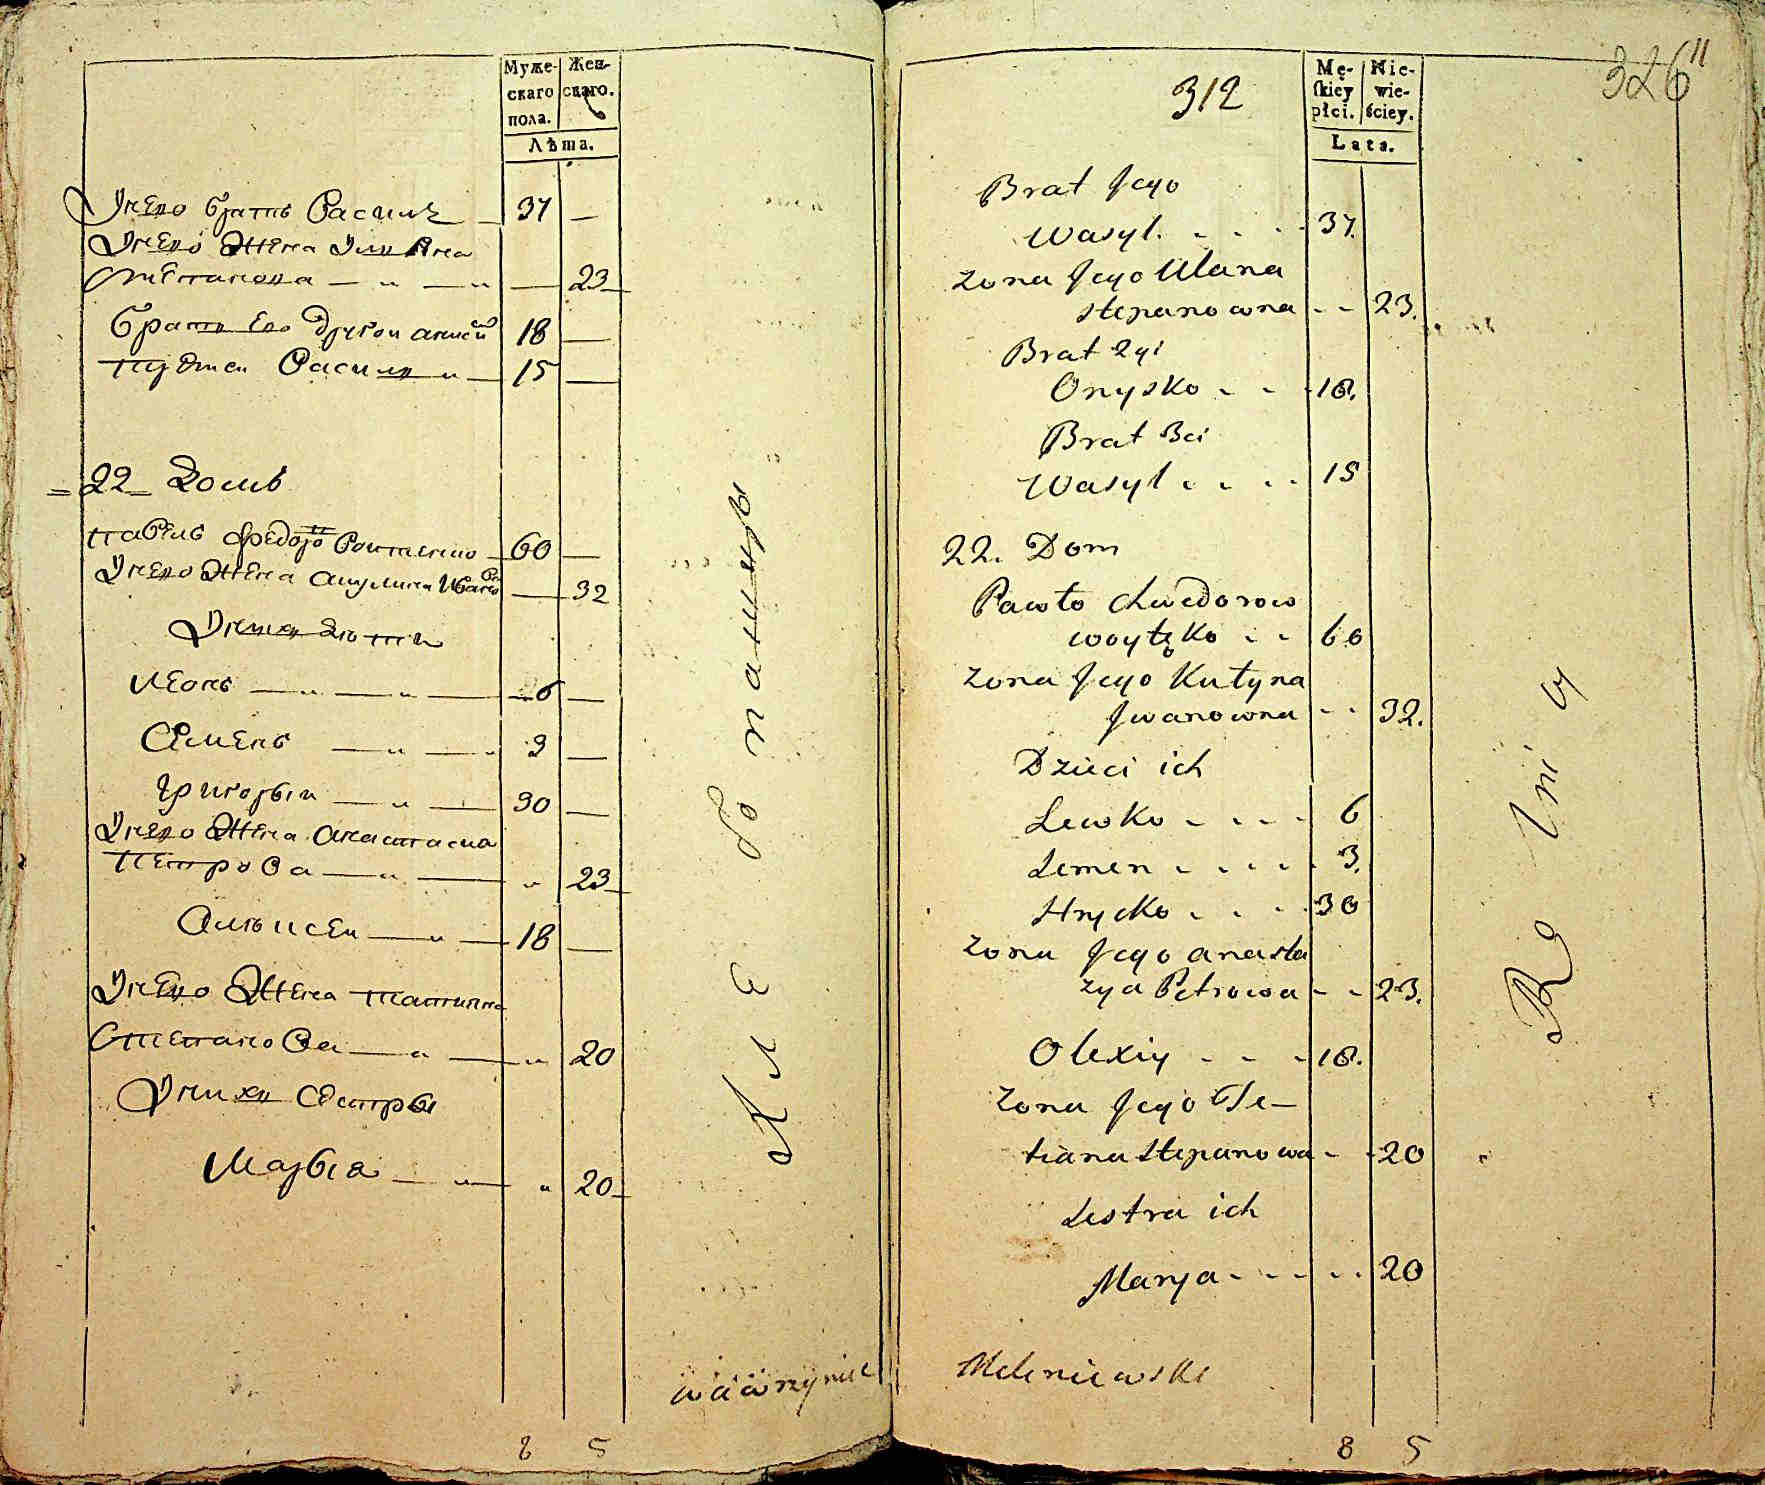 Муже-
скаго
пола.
Жен-
скаго.
Лѣта.
Унево братъ Василь 37 —
Унево Жена Уляна
Степанова — „ — „ — 23
братъ Ево другои анисей 18 —
третеи Василь „ — 15 —
22 Домъ
Павелъ федоровъ Воитенко — 60 —
Унево Жена Акулина Иванова — 32
Унихъ дети
Леонъ — „ — „ — 6 —
Семенъ — „ — „ 3 —
Григорьи — „ — 30 —
Унево Жена Анастасиа
Петрова — „ — „ 23
Алексеи — „ — 18 —
Унево Жена Татияна
Степанова — „ — „ 20
Унихъ Сестра
Марья — „ — „ 20
Кле
ваврзунiec
8 5
312
326
11
Mę-
skiey
płci.
Nie-
wie-
ściey.
Lata.
Brat Jego
Wasyl. - - - - 37.
Zona Jego Ulana
Stepanowna - - 23.
Brat 2gi
Onysko - - - 18.
Brat 3ci
Wasyl - - - - 15
22. Dom
Pawło Chwedorow
Woytęko - - 60
Zona Jego Kutyna
Jwanowna - - 32.
Dzieci ich
Lewko - - - - 6
Semen - - - - - 3.
Hrycko - - - - 30
Zona Jego Anasta
zya Petrowa - - 23.
Olexiy - - - 18.
Zona Jego Te-
tiana Stepanowa - - 20
Sestra ich
Marya - - - - - 20
Meleniewski
8 5